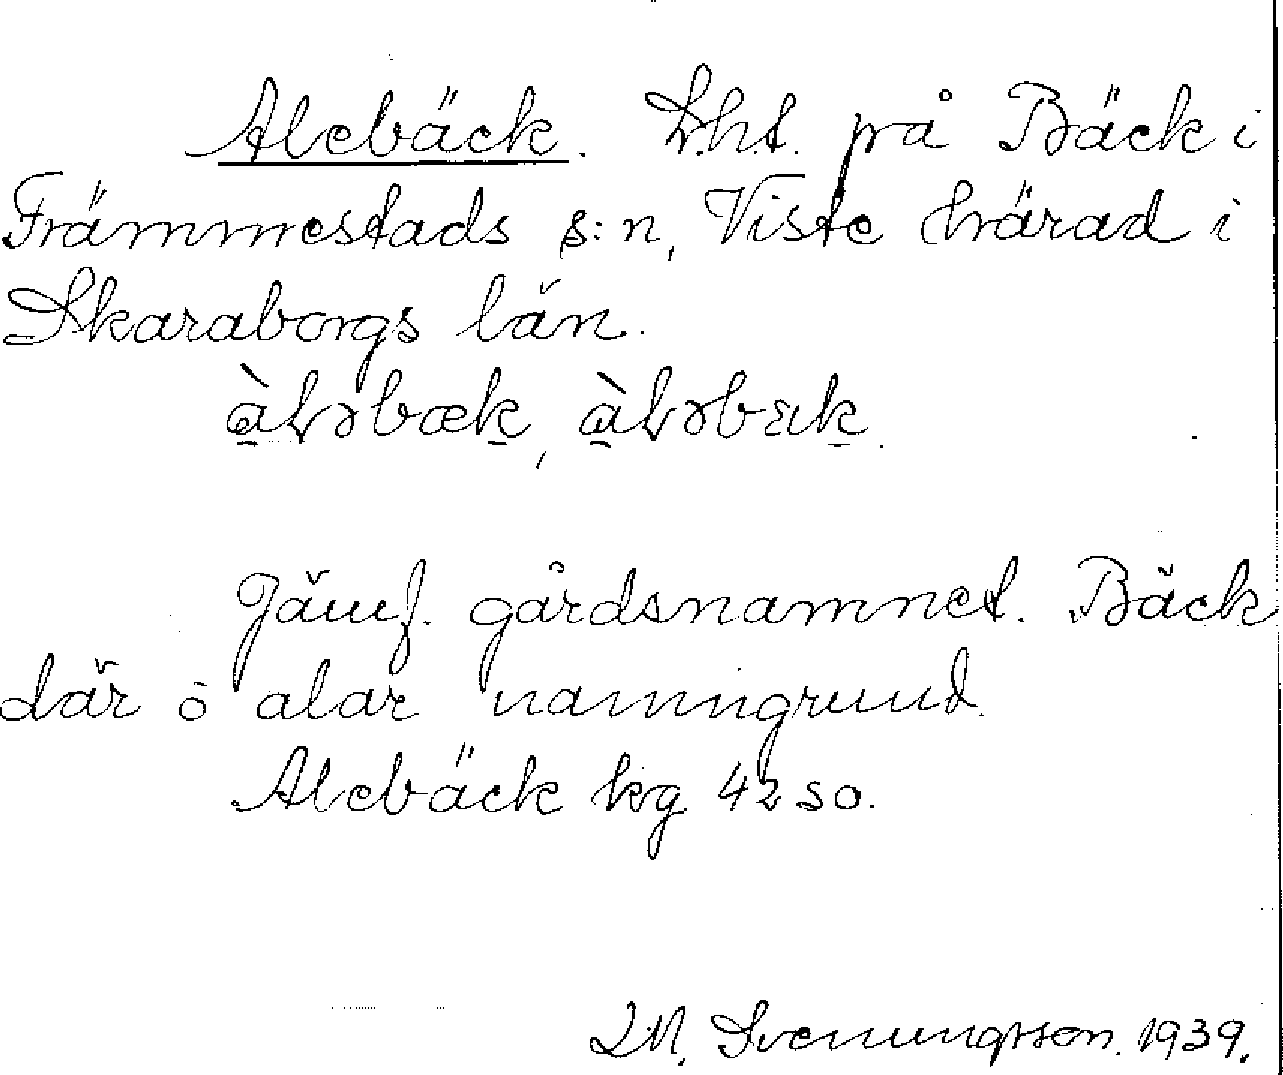 Alebäck. Lht. på Bäck i
Främmestads s:n, Viste härad i
Skaraborgs län.
àləbæk, àləbæk.
Jämf. gårdsnamnet. Bäck
där o alar namngrund.
Alebäck kg 42 so.
Svenungsson. 1939.